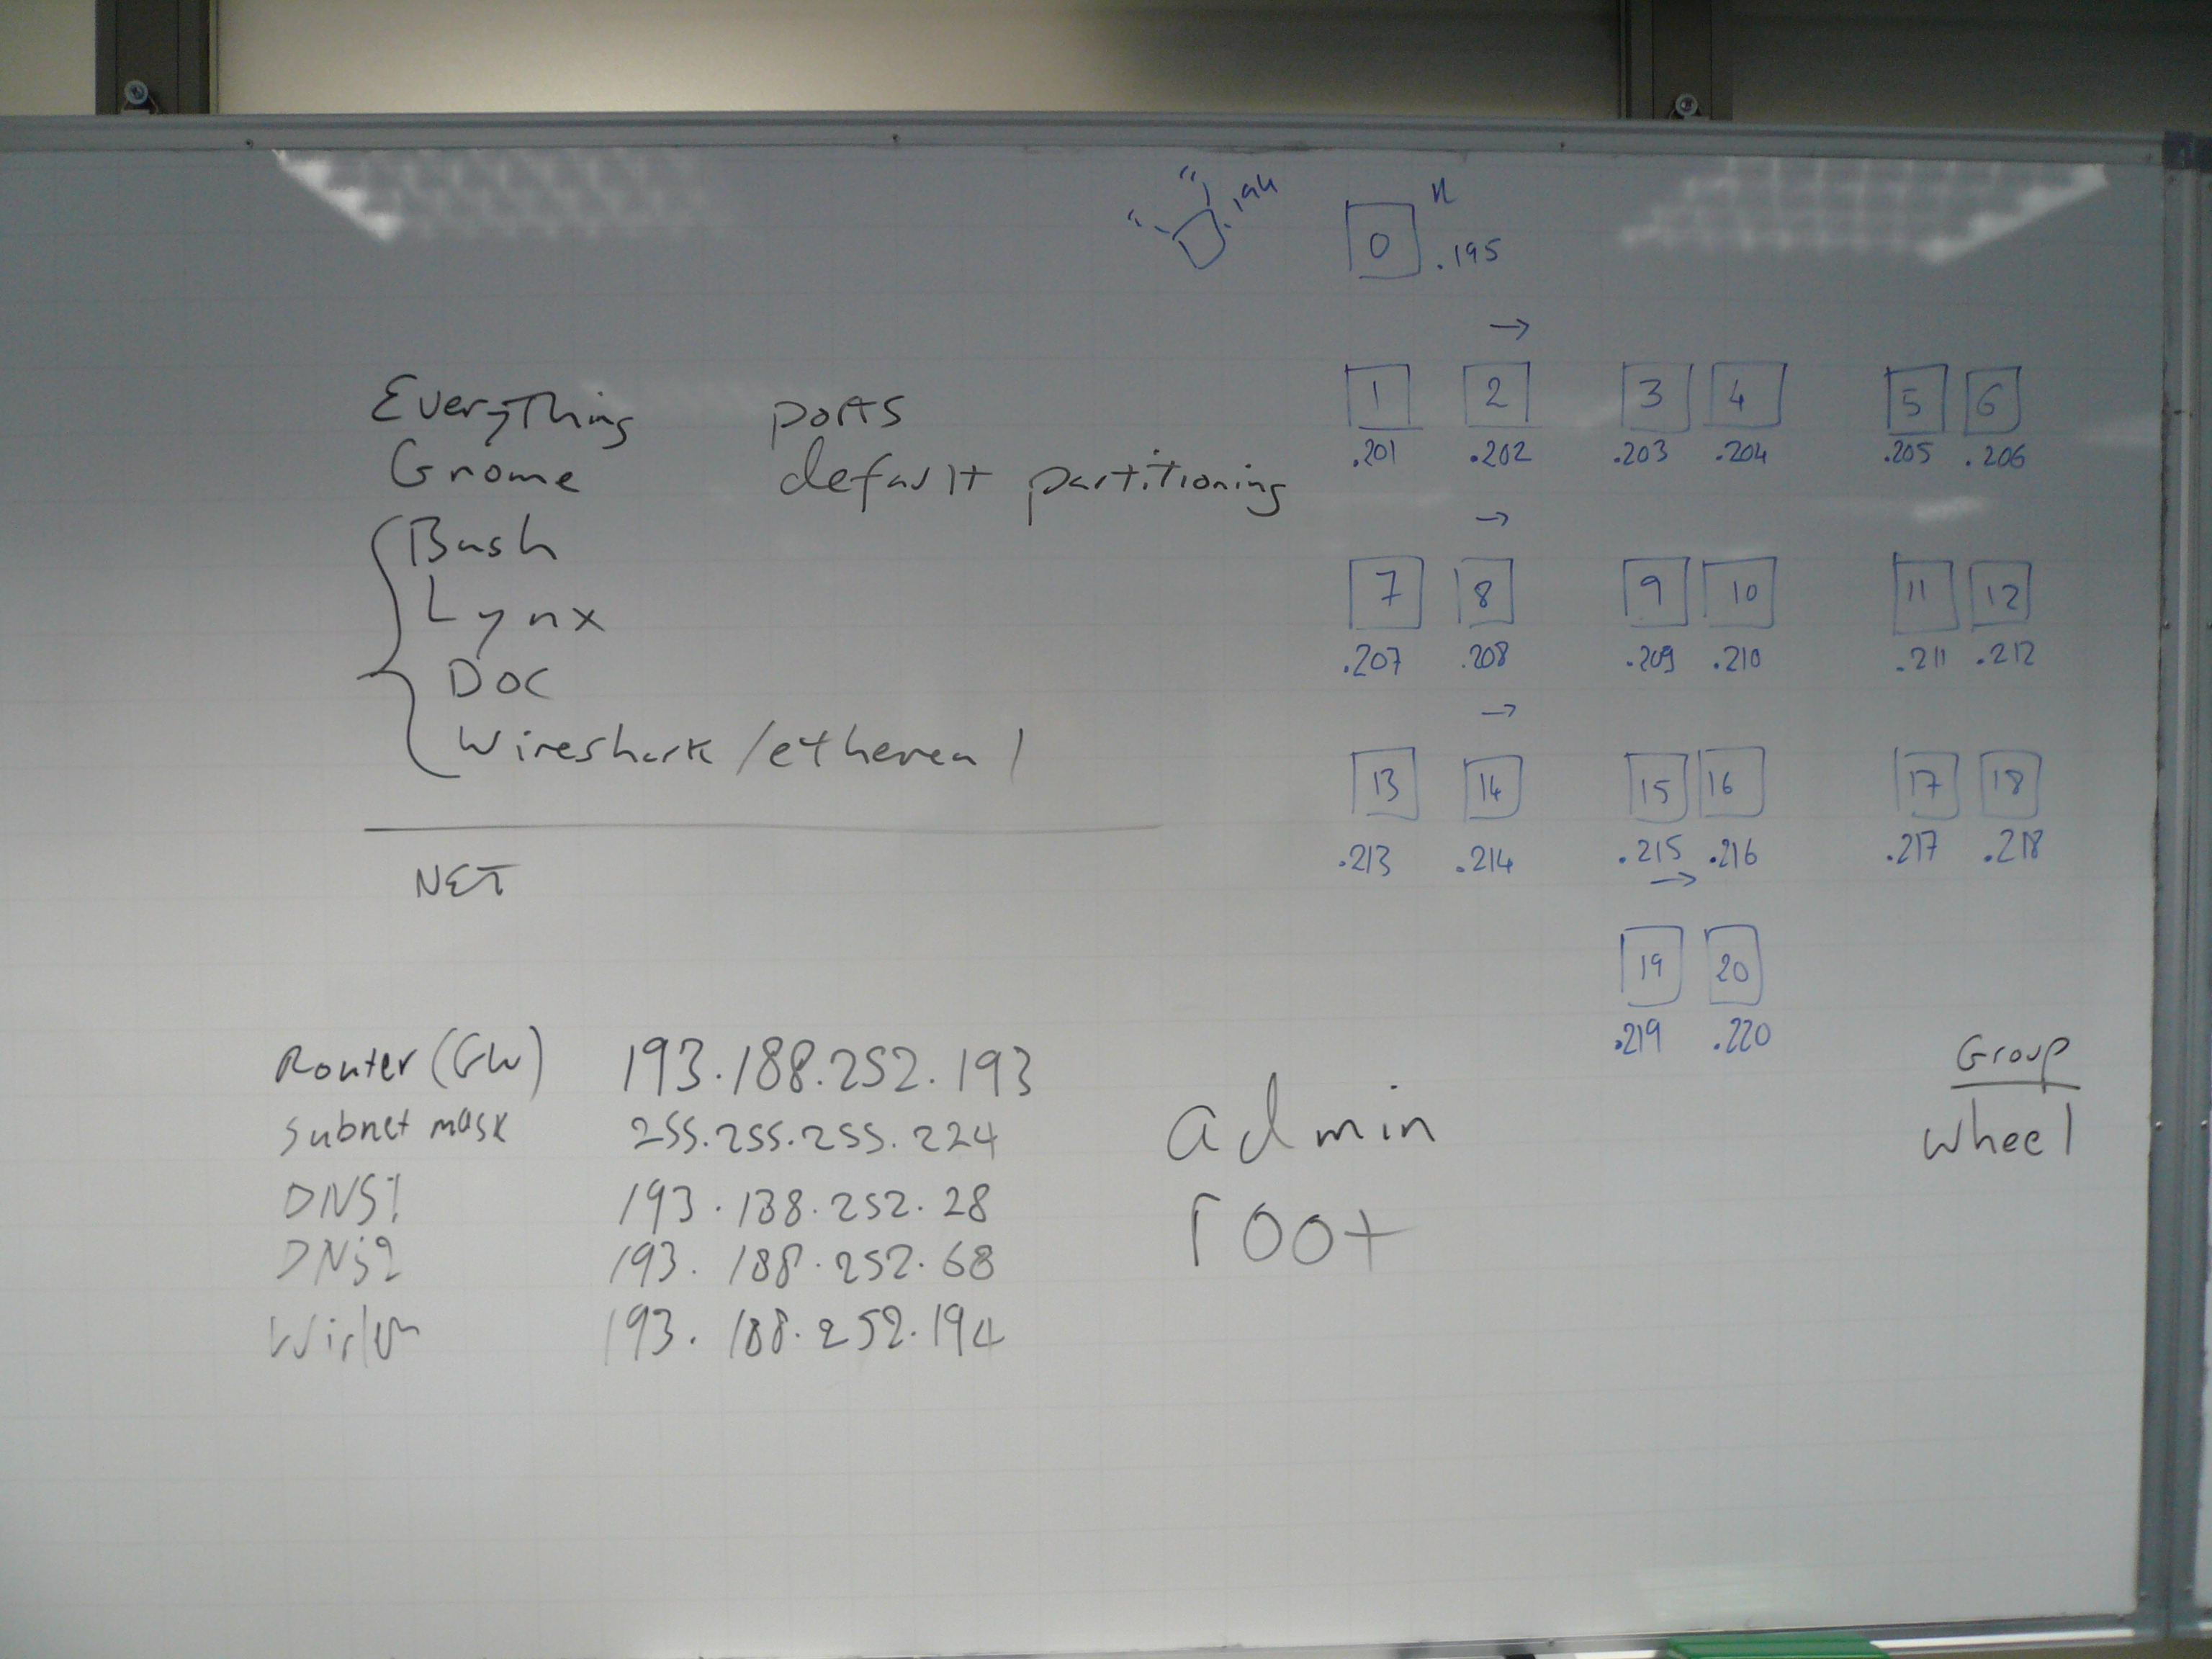 .194
0 .195
Everything ports
Gnome default partitioning
Bash
Lynx
Doc
Wireshark/ethereal
NET
1 2 3 4 5 6
.201 .202 .203 .204 .205 .206
7 8 9 10 11 12
.207 .208 .209 .210 .211 .212
13 14 15 16 17 18
.213 .214 .215 .216 .217 .218
19 20
.219 .220
Router (GW) 193.188.252.193
Subnet mask 255.255.255.224
DNS1 193.188.252.28
DNS2 193.188.252.68
193.188.252.194
admin
root
Group
wheel